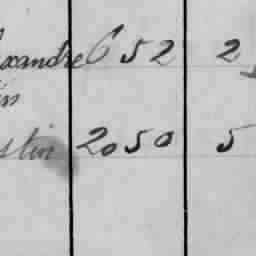 exandre 652 2
in
stin 2050 5